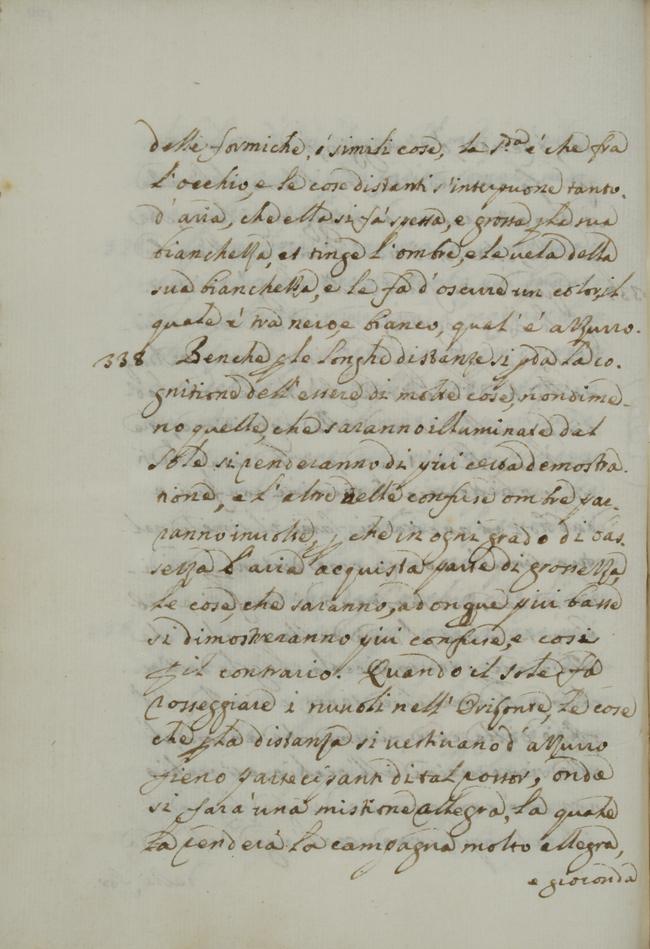 delle formiche, ò simili cose, la s.da é che fra
l'occhio, e le cose distanti s'interpuone tanto
d'aria, che ella si fà spessa, e grossa, p la sua
bianchezza, et tinge l'ombre, e le vela della
sua bianchezza, e le fa d'oscure un color, il
quale é trà nero, e bianco, qual' é azurro.
338 Benche p le longhe distanze si pda la co-
gnitione dell'essere di molte cose, nondime-
no quelle, che saranno illuminate dal
sole si renderanno di piui certa demostra-
tione, e l'altre nelle confuse ombre par-
ranno involte, p che in ogni grado di bas-
sezza l'aria acquista parte di grossezza,
le cose, che saranno, adonque piui basse
si dimostreranno piui confuse, e cosi
p il contrario. Quando il sole fà
rosseggiare i nuvoli nell'Orisonte, le cose
che p la distanza si vestivano d'azurro
fieno partecipanti di tal rossor, onde
si farà una mistione allegra, la quale
la renderà la campagna molto allegra,
e gioconda